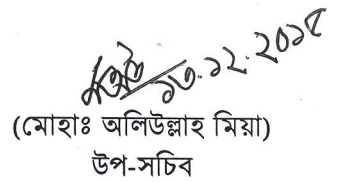 ১৩.১২.২০১৫
(মোহাঃ অলিউল্লাহ মিয়া)
উপ-সচিব